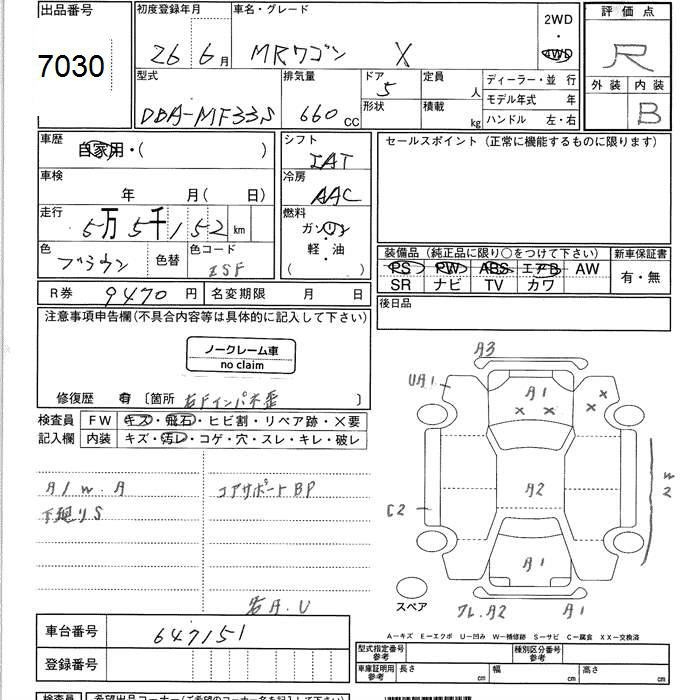 出品番号
7030
初度登録年月
26 6月
車名・グレード
MRワゴン X
2WD
・
4WD
評価点
R
外装 内装
B
型式
DBA-MF33S
排気量
660 cc
ドア
5
形状
定員
人
積載
kg
ディーラー・並 行
モデル年式 年
ハンドル 左・右
車歴
自家用・( )
車検
年 月( 日)
走行
5万5千152 km
色
ブラウン
色替
色コード
ZSF
シフト
IAT
冷房
AAC
燃料
ガソリン
・
軽・油
( )
セールスポイント(正常に機能するものに限ります)
装備品(純正品に限り○をつけて下さい)
PS PW ABS エアB AW
SR ナビ TV カワ
新車保証書
有・無
R券 9470 円
名変期限 月 日
後日品
注意事項申告欄(不具合内容等は具体的に記入して下さい)
ノークレーム車
no claim
修復歴 有 〔箇所 右Fインパネ歪
検査員
記入欄
FW キズ・飛石・ヒビ割・リペア跡・×要
内装 キズ・汚レ・コゲ・穴・スレ・キレ・破レ
A/W.A
下廻りS
コアサポートBP
A.U
A3
UA1
A1
× ×
×
×
A2
C2
W2
A1
スペア
フレ.A2
A1
A−キズ E−エクボ U−凹み W−補修跡 S−サビ C−腐食 XX−交換済
車台番号
647151
登録番号
型式指定番号
参考
種別区分番号
参考
車庫証明用
参考
長さ cm
幅 cm
高さ cm
検査員
希望出品コーナー(ご希望のコーナー名を記入して下さい)